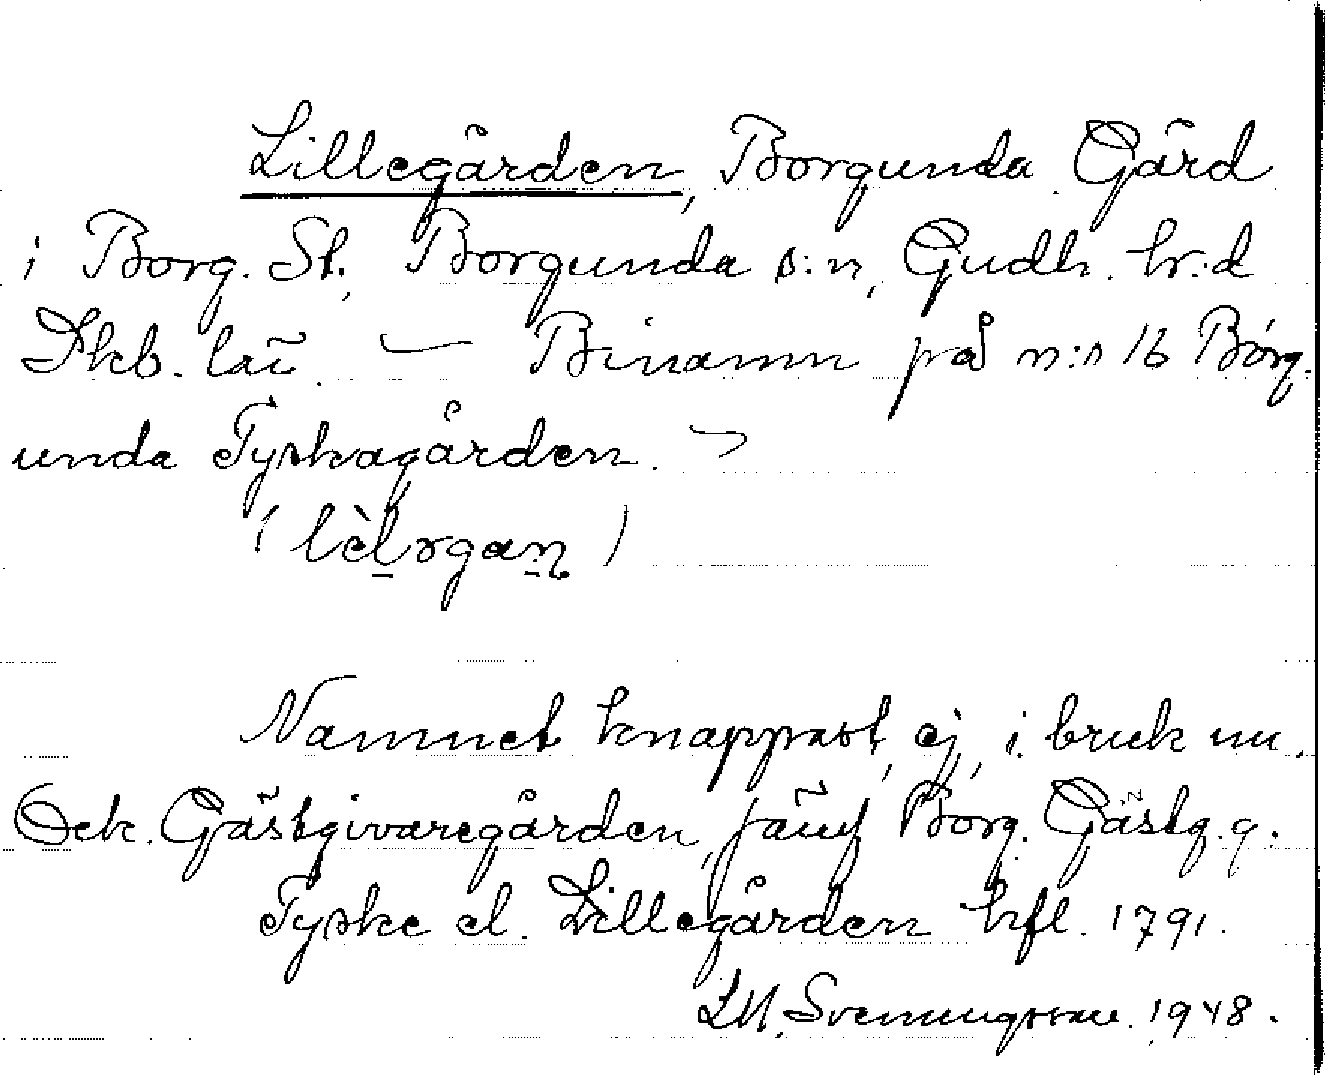 Lillegården, Borgunda Gård
i Borg. St., Borgunda s:n, Gudh. hr:d
Skb. län. — Binamn på n:o 16 Borg-
unda Tyskagården.
(lèlrgan)
Namnet knappast, ej, i bruk nu.
Och. Gästgivaregården, jämf Borg. Gästg.g.
Tyske el. Lillegården hfl. 1791.
Svenungsson. 1948.